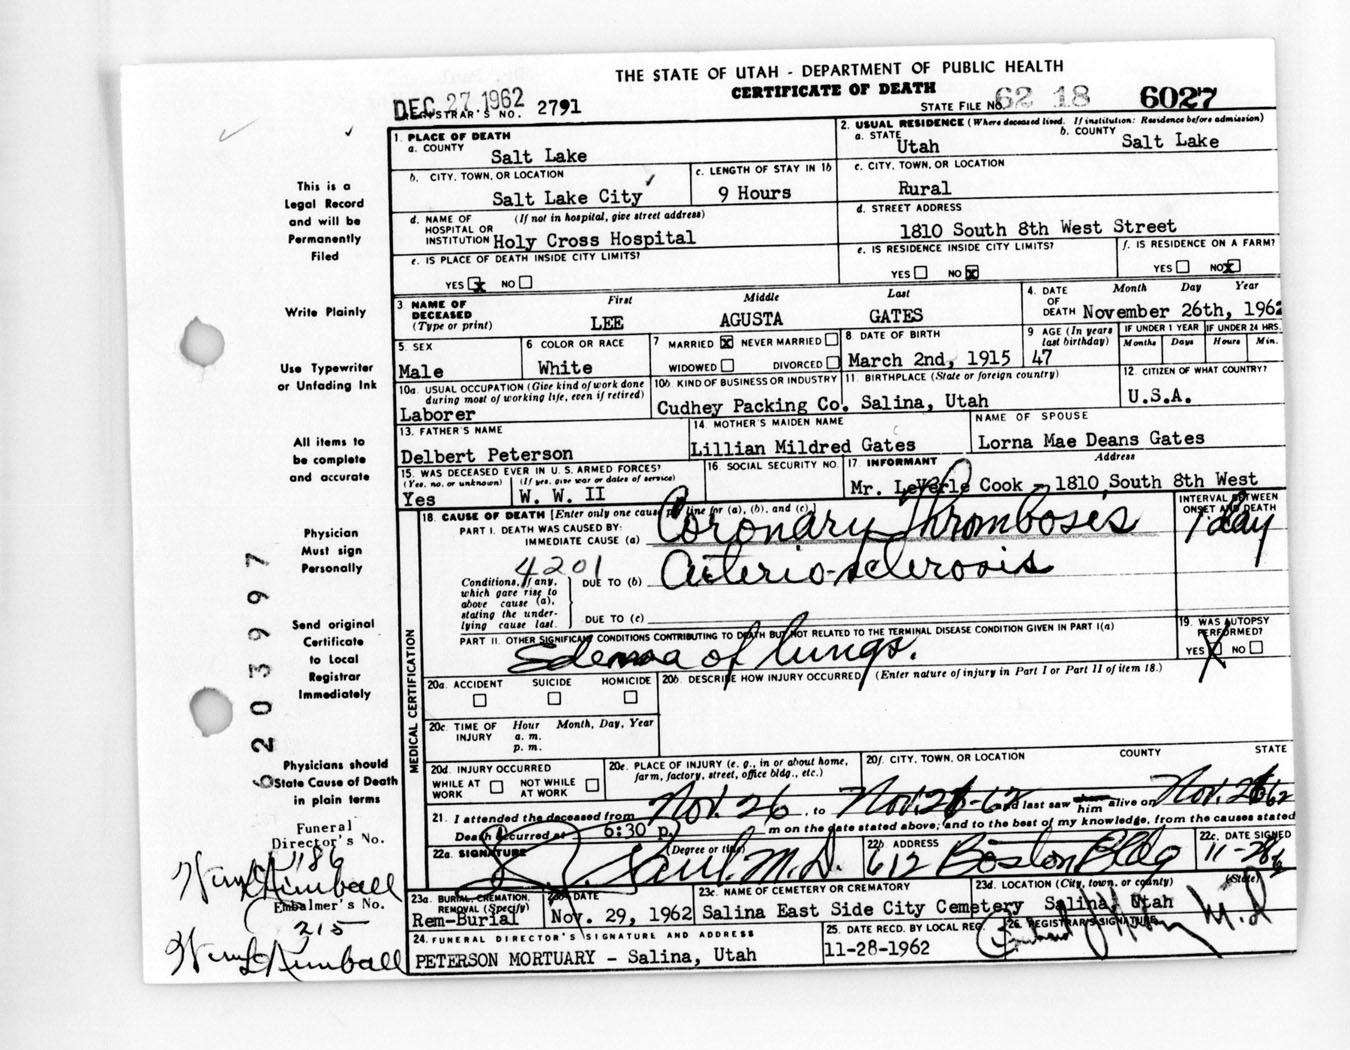 THE STATE OF UTAH - DEPARTMENT OF PUBLIC HEALTH
CERTIFICATE OF DEATH
DEC 27 1962
REGISTRAR'S NO. 2791
STATE FILE NO. 62 18 6027
1. PLACE OF DEATH
a. COUNTY Salt Lake
2. USUAL RESIDENCE (Where deceased lived. If institution: Residence before admission)
a. STATE Utah
b. COUNTY Salt Lake
b. CITY, TOWN, OR LOCATION Salt Lake City
c. LENGTH OF STAY IN 1b 9 Hours
c. CITY, TOWN, OR LOCATION Rural
d. NAME OF HOSPITAL OR INSTITUTION (If not in hospital, give street address) Holy Cross Hospital
d. STREET ADDRESS 1810 South 8th West Street
e. IS PLACE OF DEATH INSIDE CITY LIMITS?
YES x NO
e. IS RESIDENCE INSIDE CITY LIMITS?
YES NO x
f. IS RESIDENCE ON A FARM?
YES NO x
3. NAME OF DECEASED (Type or print)
First Middle Last
LEE AGUSTA GATES
4. DATE OF DEATH Month Day Year
November 26th, 1962
5. SEX Male
6. COLOR OR RACE White
7. MARRIED x NEVER MARRIED
WIDOWED DIVORCED
8. DATE OF BIRTH March 2nd, 1915
9. AGE (In years last birthday) 47
IF UNDER 1 YEAR Months Days
IF UNDER 24 HRS. Hours Min.
10a. USUAL OCCUPATION (Give kind of work done during most of working life, even if retired) Laborer
10b. KIND OF BUSINESS OR INDUSTRY Cudhey Packing Co.
11. BIRTHPLACE (State or foreign country) Salina, Utah
12. CITIZEN OF WHAT COUNTRY? U.S.A.
13. FATHER'S NAME Delbert Peterson
14. MOTHER'S MAIDEN NAME Lillian Mildred Gates
NAME OF SPOUSE Lorna Mae Deans Gates
15. WAS DECEASED EVER IN U.S. ARMED FORCES?
(Yes, no, or unknown) Yes
(If yes, give war or dates of service) W. W. II
16. SOCIAL SECURITY NO.
17. INFORMANT Address
Mr. LeVerle Cook - 1810 South 8th West
18. CAUSE OF DEATH [Enter only one cause per line for (a), (b), and (c).]
INTERVAL BETWEEN ONSET AND DEATH
PART I. DEATH WAS CAUSED BY:
IMMEDIATE CAUSE (a) Coronary Thrombosis 1 day
4201
Conditions, if any, which gave rise to above cause (a), stating the underlying cause last.
DUE TO (b) Arterio-sclerosis
DUE TO (c)
PART II. OTHER SIGNIFICANT CONDITIONS CONTRIBUTING TO DEATH BUT NOT RELATED TO THE TERMINAL DISEASE CONDITION GIVEN IN PART I(a)
Edema of lungs.
19. WAS AUTOPSY PERFORMED?
YES X NO
MEDICAL CERTIFICATION
20a. ACCIDENT SUICIDE HOMICIDE
20b. DESCRIBE HOW INJURY OCCURRED (Enter nature of injury in Part I or Part II of item 18.)
20c. TIME OF INJURY Hour Month, Day, Year
a. m.
p. m.
20d. INJURY OCCURRED
WHILE AT WORK NOT WHILE AT WORK
20e. PLACE OF INJURY (e. g., in or about home, farm, factory, street, office bldg., etc.)
20f. CITY, TOWN, OR LOCATION COUNTY STATE
21. I attended the deceased from Nov. 26, to Nov. 26-62 and last saw him alive on Nov. 26 62
Death occurred at 6:30 p. m on the date stated above; and to the best of my knowledge, from the causes stated
22a. SIGNATURE (Degree or title) Paul M.D.
22b. ADDRESS 612 Boston Bldg
22c. DATE SIGNED 11-28-6
23a. BURIAL, CREMATION, REMOVAL (Specify) Rem-Burial
23b. DATE Nov. 29, 1962
23c. NAME OF CEMETERY OR CREMATORY Salina East Side City Cemetery
23d. LOCATION (City, town, or county) (State) Salina Utah
24. FUNERAL DIRECTOR'S SIGNATURE AND ADDRESS
PETERSON MORTUARY - Salina, Utah
25. DATE RECD. BY LOCAL REG. 11-28-1962
26. REGISTRAR'S SIGNATURE M.D
This is a
Legal Record
and will be
Permanently
Filed
Write Plainly
Use Typewriter
or Unfading Ink
All items to
be complete
and accurate
Physician
Must sign
Personally
Send original
Certificate
to Local
Registrar
Immediately
Physicians should
State Cause of Death
in plain terms
Funeral
Director's No.
1186
Kimball
Embalmer's No.
215
Kimball
6203997